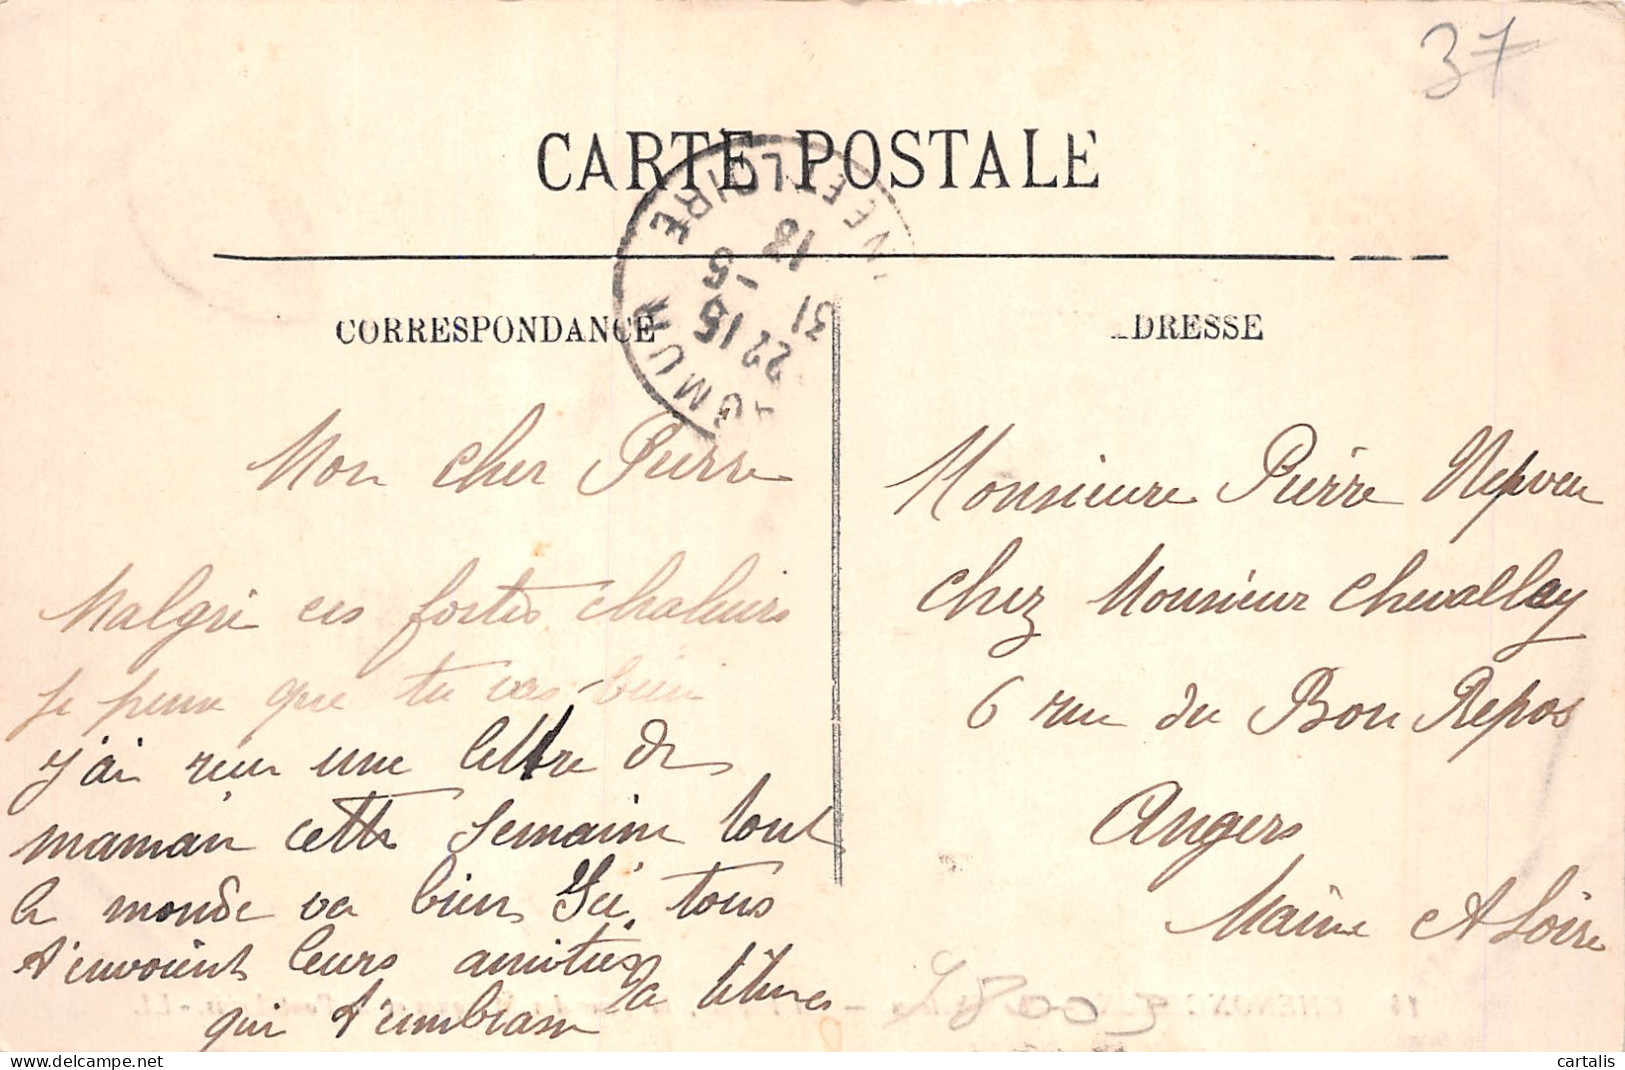 37
CARTE POSTALE
CORRESPONDANCE
ADRESSE
22 15
31 -5
13
LOIRE
Mon cher Pierre
Malgré ces fortes chaleurs
je pense que tu vas bien
j'ai reçu une lettre de
maman cette semaine tout
le monde va bien Ici tous
t'envoient leurs amitiés
qui t'embrasse
Monsieure Pierre Nepveu
chez Monsieur Chevalley
6 rue du Bon Repos
Angers
Maine & Loire
14 CHENON
cartalis